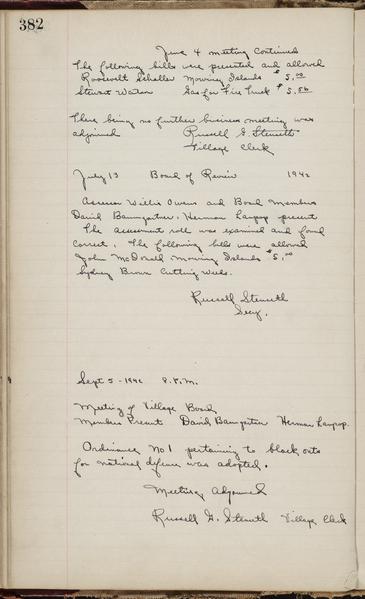 382
June 4 meeting continued
The following bills were presented and allowed
Roosevelt Schaller Mowing Islands $5.00
Stewart Watson Gas for Fire Truck $5.56
There being no further business meeting was
adjoined Russell G. Stenseth
Village Clerk
July 13 Board of Review 1942
Assessor Willis Owens and Board Members
David Baumgartner, Herman present
The assessment roll was examined and found
correct. The following bills were allowed
John McDonald Mowing Islands $5.00
Sydney Brown Cutting Weeds.
Russell Stenseth
Secy.
Sept 5 - 1942 8 P.M.
Meeting of Village Board
Members Present David Baumgarten Herman
Ordinance No 1 pertaining to black outs
for national defence was adopted.
Meeting Adjourned
Russell G. Stenseth Village Clerk